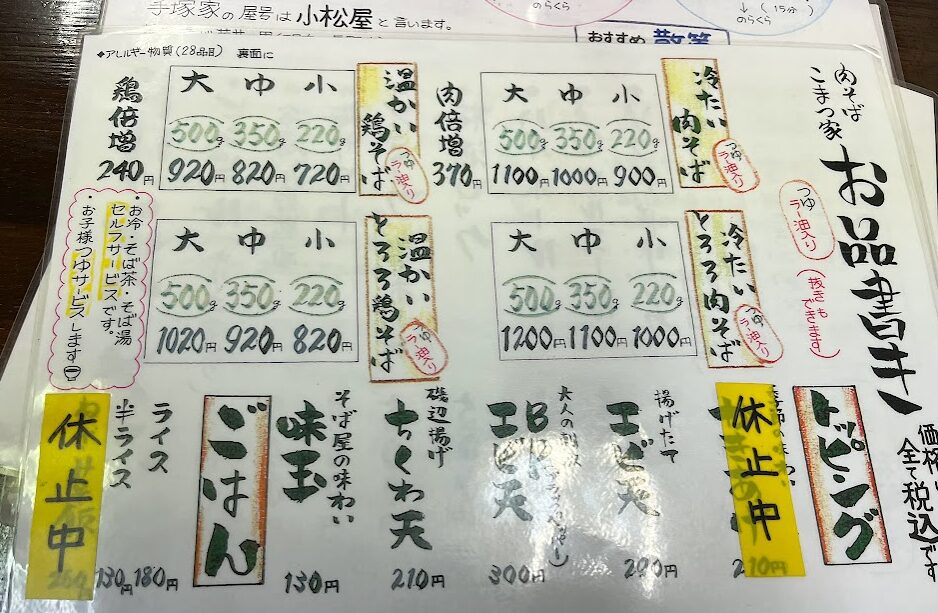 手塚家の屋号は小松屋と言います。
のらくら
↓(15分)
のらくら
おすすめ 散策
◆アレルギー物質(28品目) 裏面に
肉そば
こまつ家
お品書き
つゆ
ラー油入り
(抜きも
できます)
全て税込です
冷たい
肉そば
つゆ
ラー油入り
小 中 大
220g 350g 500g
900円 1000円 1100円
肉倍増
370円
温かい
鶏そば
つゆ
ラー油入り
小 中 大
220g 350g 500g
720円 820円 920円
鶏倍増
240円
冷たい
とろろ肉そば
つゆ
ラー油入り
小 中 大
220g 350g 500g
1000円 1100円 1200円
温かい
とろろ鶏そば
つゆ
ラー油入り
小 中 大
220g 350g 500g
820円 920円 1020円
・お冷・そば茶・そば湯
セルフサービスです。
・お子様つゆサービスします
トッピング
休止中
揚げたて
エビ天
エビ天
300円
磯辺揚げ
ちくわ天
210円
そば屋の味わい
味玉
130円
ごはん
ライス
180円
半ライス
130円
休止中